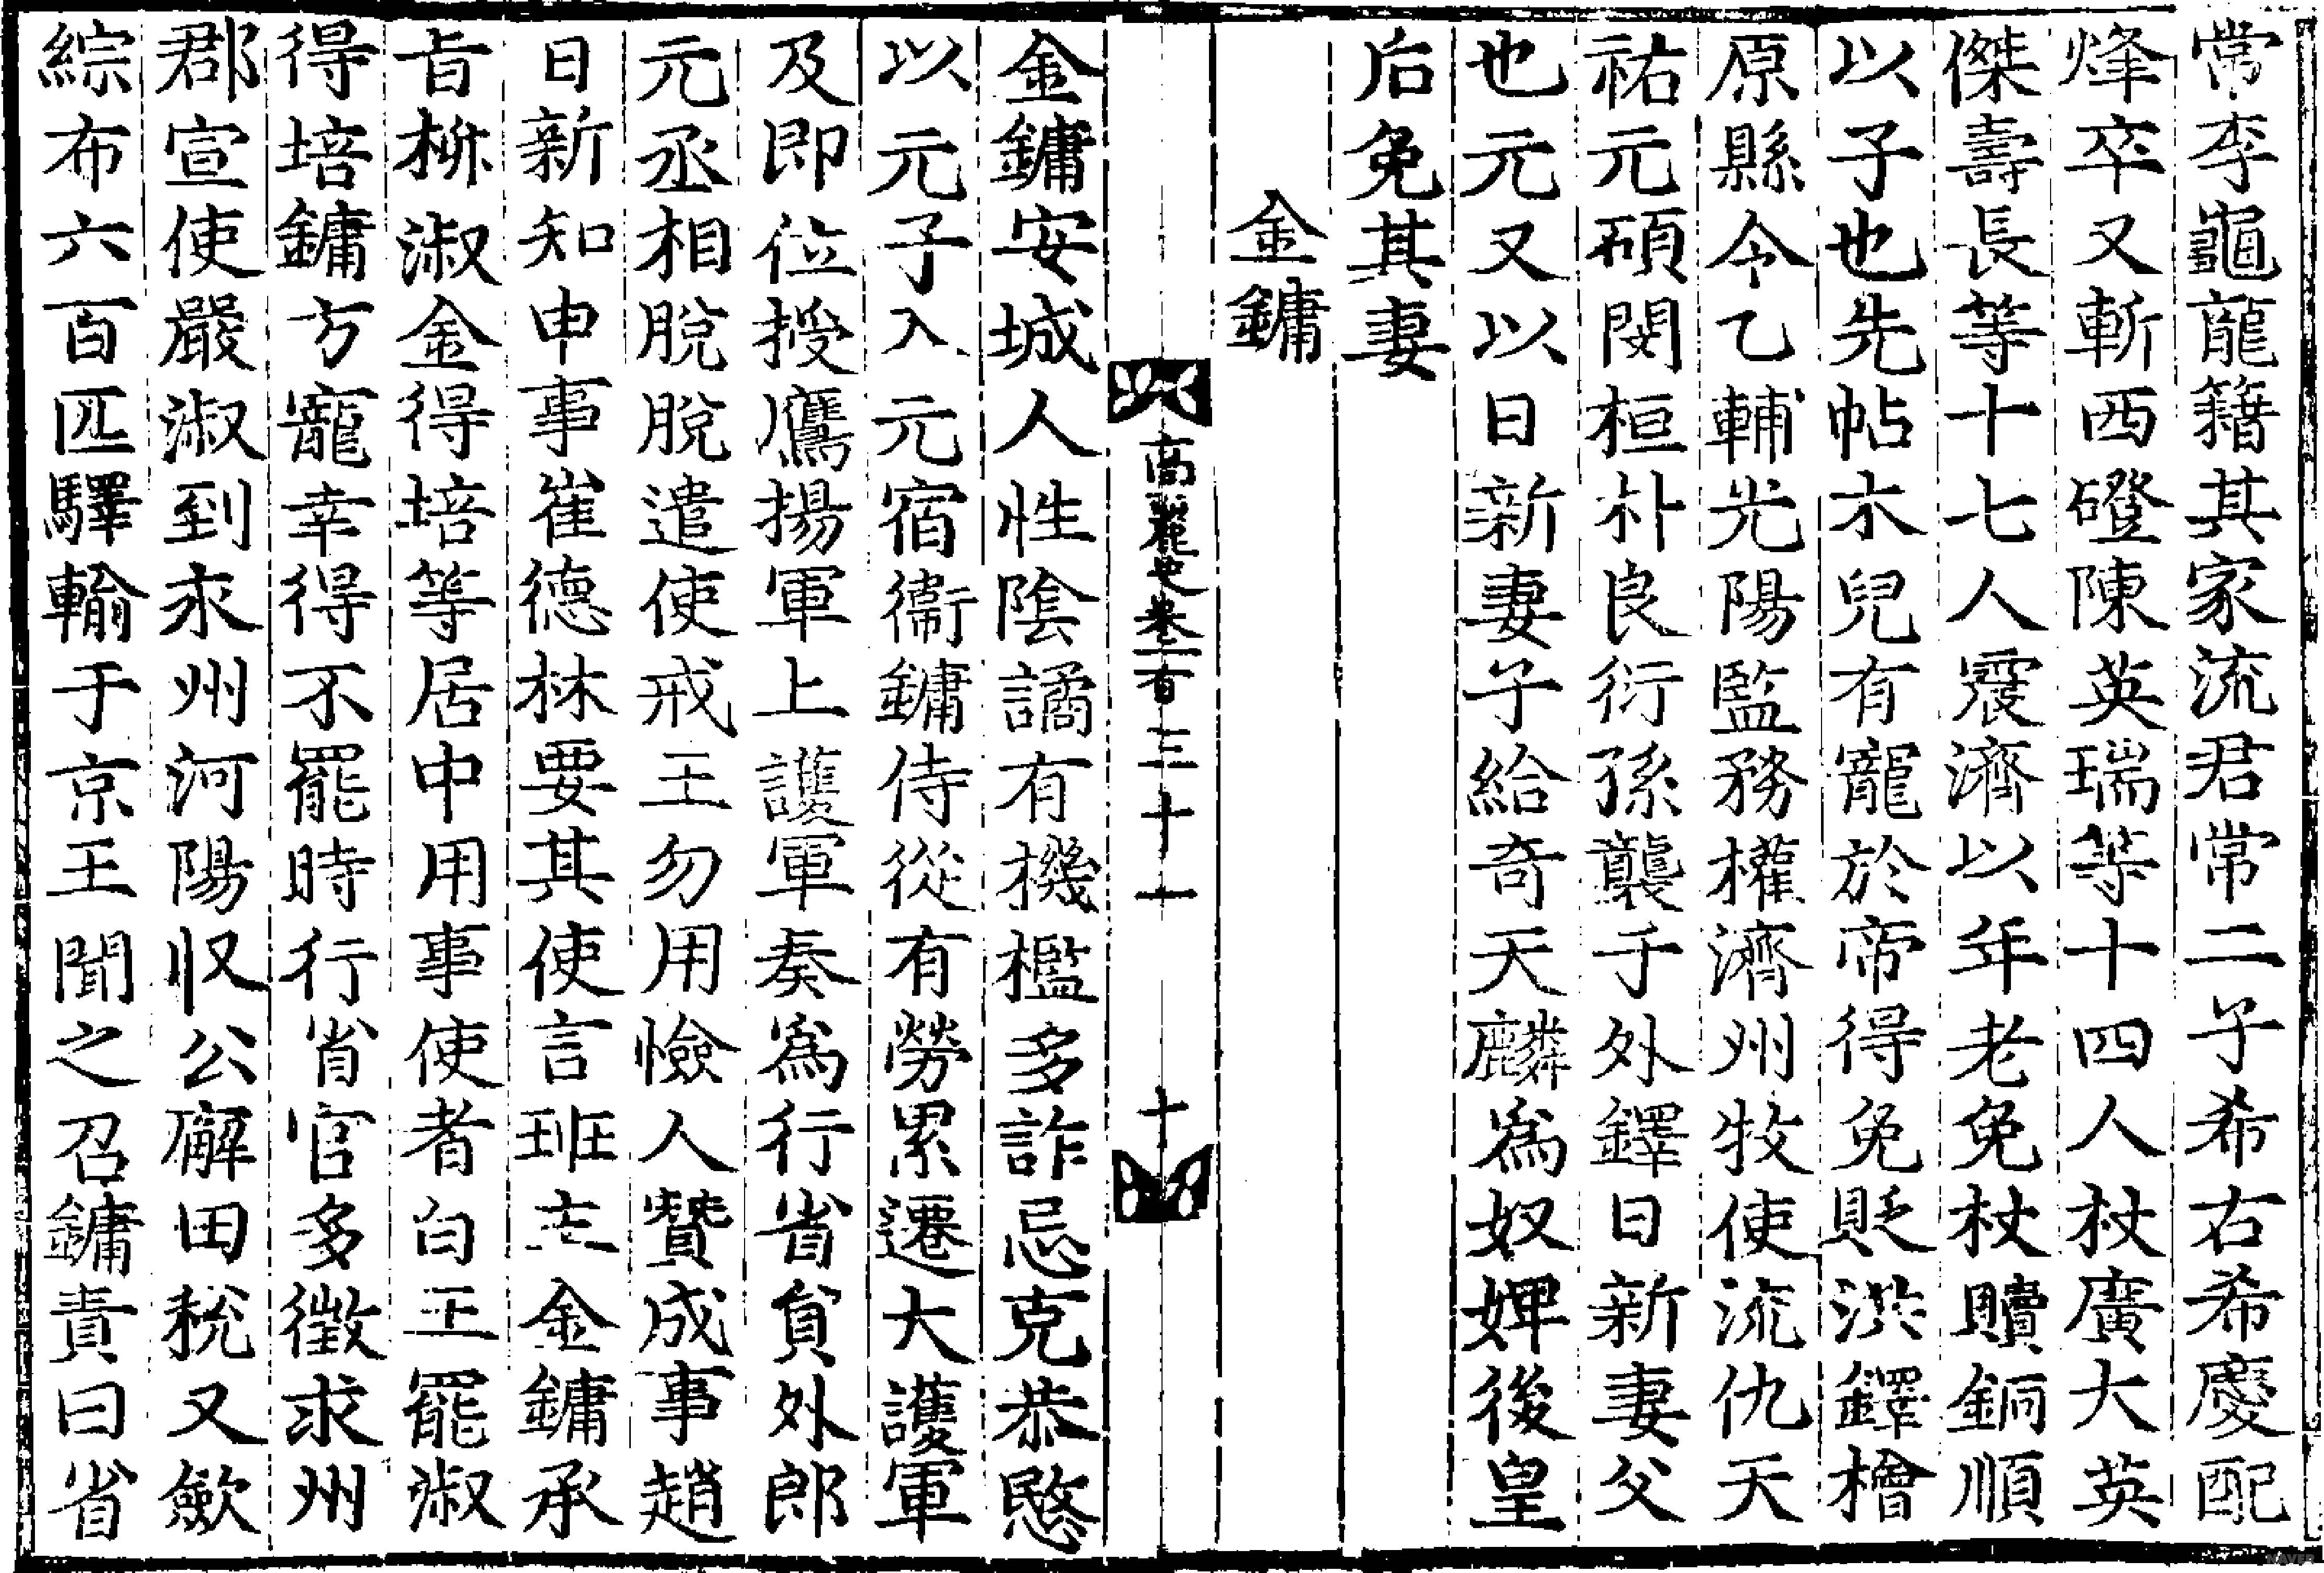 常李龜龍籍其家流君常二子希右希慶配
烽卒又斬西磴陳英瑞等十四人杖廣大英
傑壽長等十七人震濟以年老免杖贖銅順
以子也先帖木兒有寵於帝得免貶洪鐸檜
原縣令乙輔光陽監務權濟州牧使流仇天
祐元碩閔桓朴良衍孫襲于外鐸日新妻父
也元又以日新妻子給奇天麟爲奴婢後皇
后免其妻
金鏞
高麗史卷一百三十一
十
金鏞安城人性陰譎有機檻多詐忌克恭愍
以元子入元宿衛鏞侍從有勞累遷大護軍
及即位授鷹揚軍上護軍奏爲行省員外郎
元丞相脫脫遣使戒王勿用憸人贊成事趙
日新知申事崔德林要其使言班主金鏞承
旨柳淑金得培等居中用事使者白王罷淑
得培鏞方寵幸得不罷時行省官多徵求州
郡宣使嚴淑到永州河陽収公廨田稅又斂
綜布六百匹驛輸于京王聞之召鏞責曰省